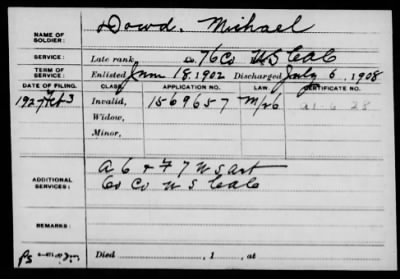 NAME OF SOLDIER: Dowd, Michael
SERVICE: Late rank, 76 Co US CAC
TERM OF SERVICE: Enlisted June 18, 1902 Discharged July 6, 1908
DATE OF FILING. CLASS. APPLICATION NO. LAW. CERTIFICATE NO.
1927 Feb 3 Invalid, 1569657
Widow,
Minor,
ADDITIONAL SERVICES: A 6 & F 7 US Art
60 Co US CAC
REMARKS:
Died , 1 , at